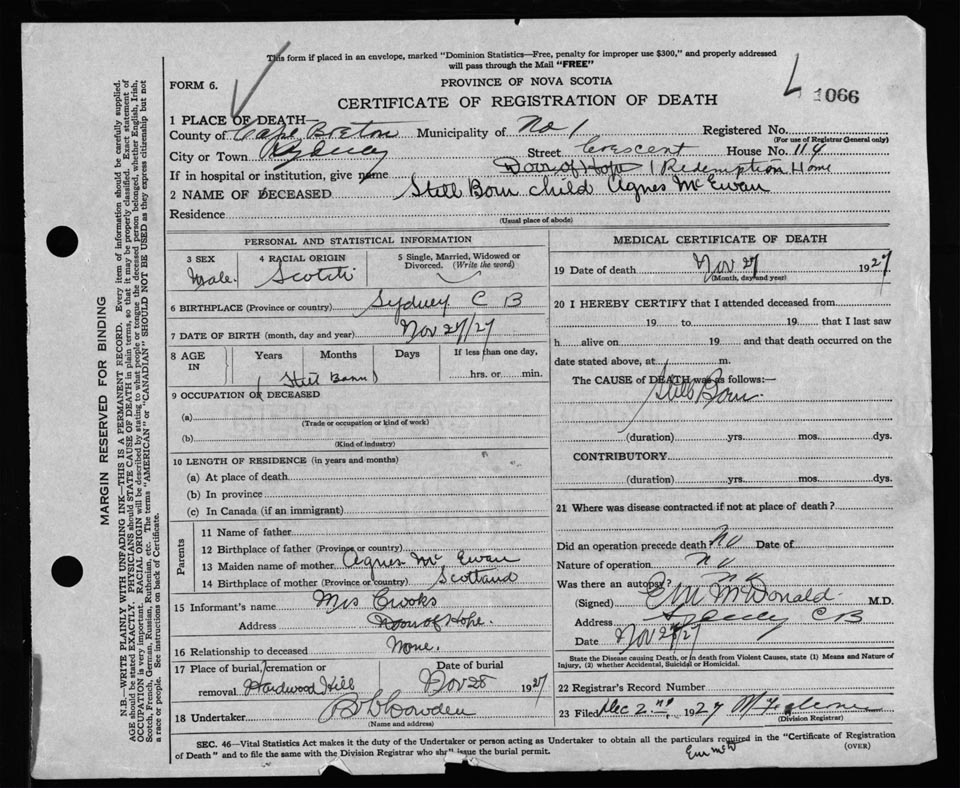 This form if placed in an envelope, marked "Dominion Statistics—Free, penalty for improper use $300," and properly addressed
will pass through the Mail "FREE"
FORM 6.
PROVINCE OF NOVA SCOTIA
1066
CERTIFICATE OF REGISTRATION OF DEATH
1 PLACE OF DEATH—
County of Cape Breton Municipality of No 1 Registered No.
(For use of Registrar General only)
City or Town Sydney Street Crescent House No. 114
If in hospital or institution, give name Door of Hope / Redemption Home
2 NAME OF DECEASED Still Born child Agnes McEwan
Residence
(Usual place of abode)
PERSONAL AND STATISTICAL INFORMATION
3 SEX 4 RACIAL ORIGIN 5 Single, Married, Widowed or
Divorced. (Write the word)
Male. Scotch
6 BIRTHPLACE (Province or country) Sydney C B
7 DATE OF BIRTH (month, day and year) Nov 27/27
8 AGE IN Years Months Days If less than one day,
hrs. or min.
(Still Born)
9 OCCUPATION OF DECEASED
(a)
(Trade or occupation or kind of work)
(b)
(Kind of industry)
10 LENGTH OF RESIDENCE (in years and months)
(a) At place of death
(b) In province
(c) In Canada (if an immigrant)
Parents
11 Name of father
12 Birthplace of father (Province or country)
13 Maiden name of mother Agnes McEwan
14 Birthplace of mother (Province or country) Scotland
15 Informant's name Mrs Crooks
Address Door of Hope.
16 Relationship to deceased None.
17 Place of burial, cremation or Date of burial
removal Hardwood Hill Nov 28 1927
18 Undertaker
(Name and address)
MEDICAL CERTIFICATE OF DEATH
19 Date of death Nov 27 1927
(Month, day and year)
20 I HEREBY CERTIFY that I attended deceased from
19 to 19 that I last saw
h alive on 19 and that death occurred on the
date stated above, at m.
The CAUSE of DEATH was as follows:—
Still Born.
(duration) yrs. mos. dys.
CONTRIBUTORY
(duration) yrs. mos. dys.
21 Where was disease contracted if not at place of death?
Did an operation precede death No Date of
Nature of operation no
Was there an autopsy? no
(Signed) McDonald M.D.
Address Sydney C B
Date Nov 28/27
State the Disease causing Death, or in death from Violent Causes, state (1) Means and Nature of
Injury, (2) whether Accidental, Suicidal or Homicidal.
22 Registrar's Record Number
23 Filed Dec 2nd, 1927
(Division Registrar)
SEC. 46—Vital Statistics Act makes it the duty of the Undertaker or person acting as Undertaker to obtain all the particulars required in the "Certificate of Registration
of Death" and to file the same with the Division Registrar who shall issue the burial permit.
(OVER)
MARGIN RESERVED FOR BINDING
N.B.—WRITE PLAINLY WITH UNFADING INK—THIS IS A PERMANENT RECORD. Every item of information should be carefully supplied.
AGE should be stated EXACTLY. PHYSICIANS should STATE CAUSE OF DEATH in plain terms, so that it may be properly classified. Exact statement of
OCCUPATION is very important. RACIAL ORIGIN will be described by stating to what people or tongue the deceased person belonged, whether English, Irish,
Scotch, French, German, Russian, Ruthenian, etc. The terms "AMERICAN" or "CANADIAN" SHOULD NOT BE USED as they express citizenship but not
a race or people. See instructions on back of Certificate.